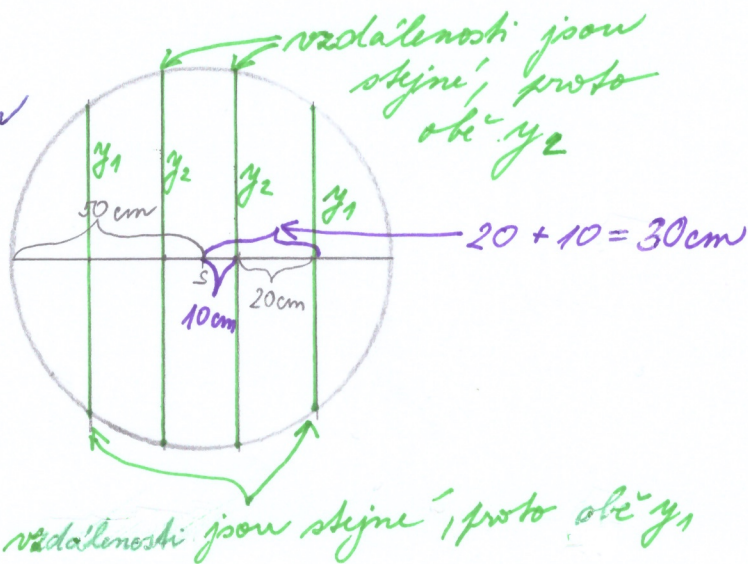 vzdálenosti jsou
stejné, proto
obě y₂
y₁
y₂
y₂
y₁
50 cm
20 + 10 = 30 cm
S
10 cm
20 cm
vzdálenosti jsou stejné, proto obě y₁